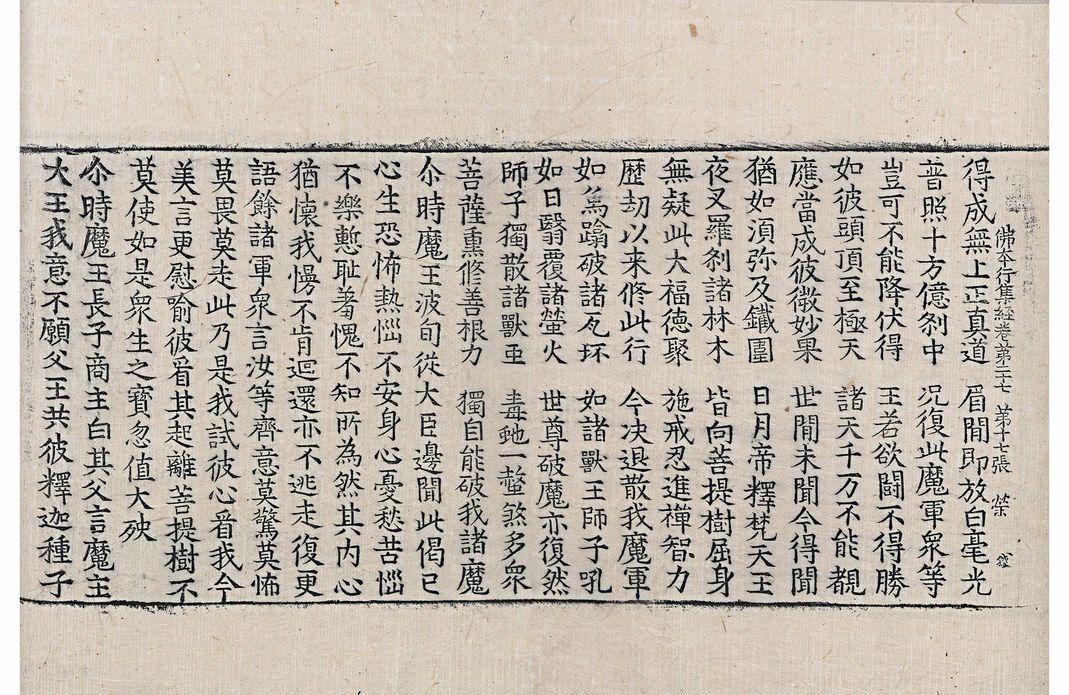 佛本行集經卷第二十七 第十七張 榮
得成無上正真道 眉閒即放白毫光
普照十方億剎中 況復此魔軍衆等
豈可不能降伏得 王若欲鬪不得勝
如彼頭頂至極天 諸天千万不能覩
應當成彼微妙果 世閒未聞今得聞
猶如湏弥及鐵圍 日月帝釋梵天王
夜叉羅剎諸林木 皆向菩提樹屈身
無疑此大福德聚 施戒忍進禪智力
歷劫以来修此行 今決退散我魔軍
如爲蹹破諸瓦坏 如諸獸王師子吼
如日翳覆諸螢火 世尊破魔亦復然
師子獨散諸獸王 毒虵一螫煞多衆
菩薩熏修善根力 獨自能破我諸魔
尒時魔王波旬從大臣邊聞此偈已
心生恐怖熱惱不安身心憂愁苦惱
不樂慙耻羞愧不知所為然其内心
猶懷我慢不肯迴還亦不逃走復更
語餘諸軍衆言汝等齊意莫驚莫怖
莫畏莫走此乃是我試彼心看我今
美言更慰喻彼看其起離菩提樹不
莫使如是衆生之寶忽值大殃
尒時魔王長子商主白其父言魔主
大王我意不願父王共彼釋迦種子